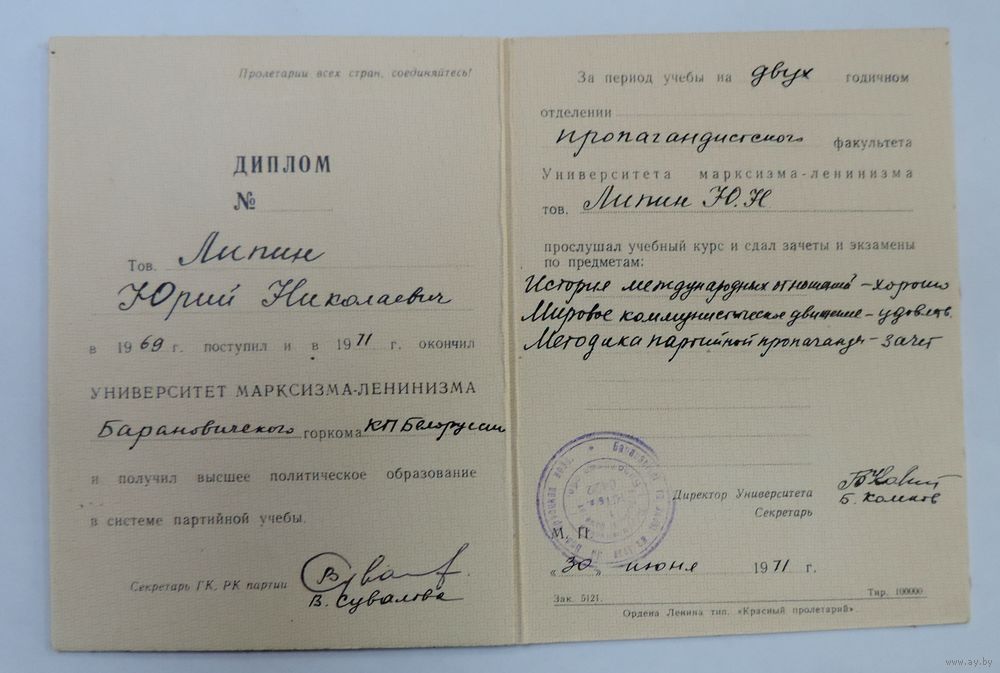 Пролетарии всех стран, соединяйтесь!
ДИПЛОМ
№
Тов. Липин
Юрий Николаевич
в 1969 г. поступил и в 1971 г. окончил
УНИВЕРСИТЕТ МАРКСИЗМА-ЛЕНИНИЗМА
Барановичского горкома КП Белоруссии
и получил высшее политическое образование
в системе партийной учебы.
Секретарь ГК, РК партии
В. Сувалова
За период учебы на двух годичном
отделении
пропагандистского факультета
Университета марксизма-ленинизма
тов. Липин Ю.Н
прослушал учебный курс и сдал зачеты и экзамены
по предметам:
История международных отношений – хорошо
Мировое коммунистическое движение – удовлетв.
Методика партийной пропаганды – зачет
Директор Университета
Секретарь
М. П.
«30» июня 1971 г.
Зак. 5121. Тир. 100000
Ордена Ленина тип. «Красный пролетарий».
www.ay.by